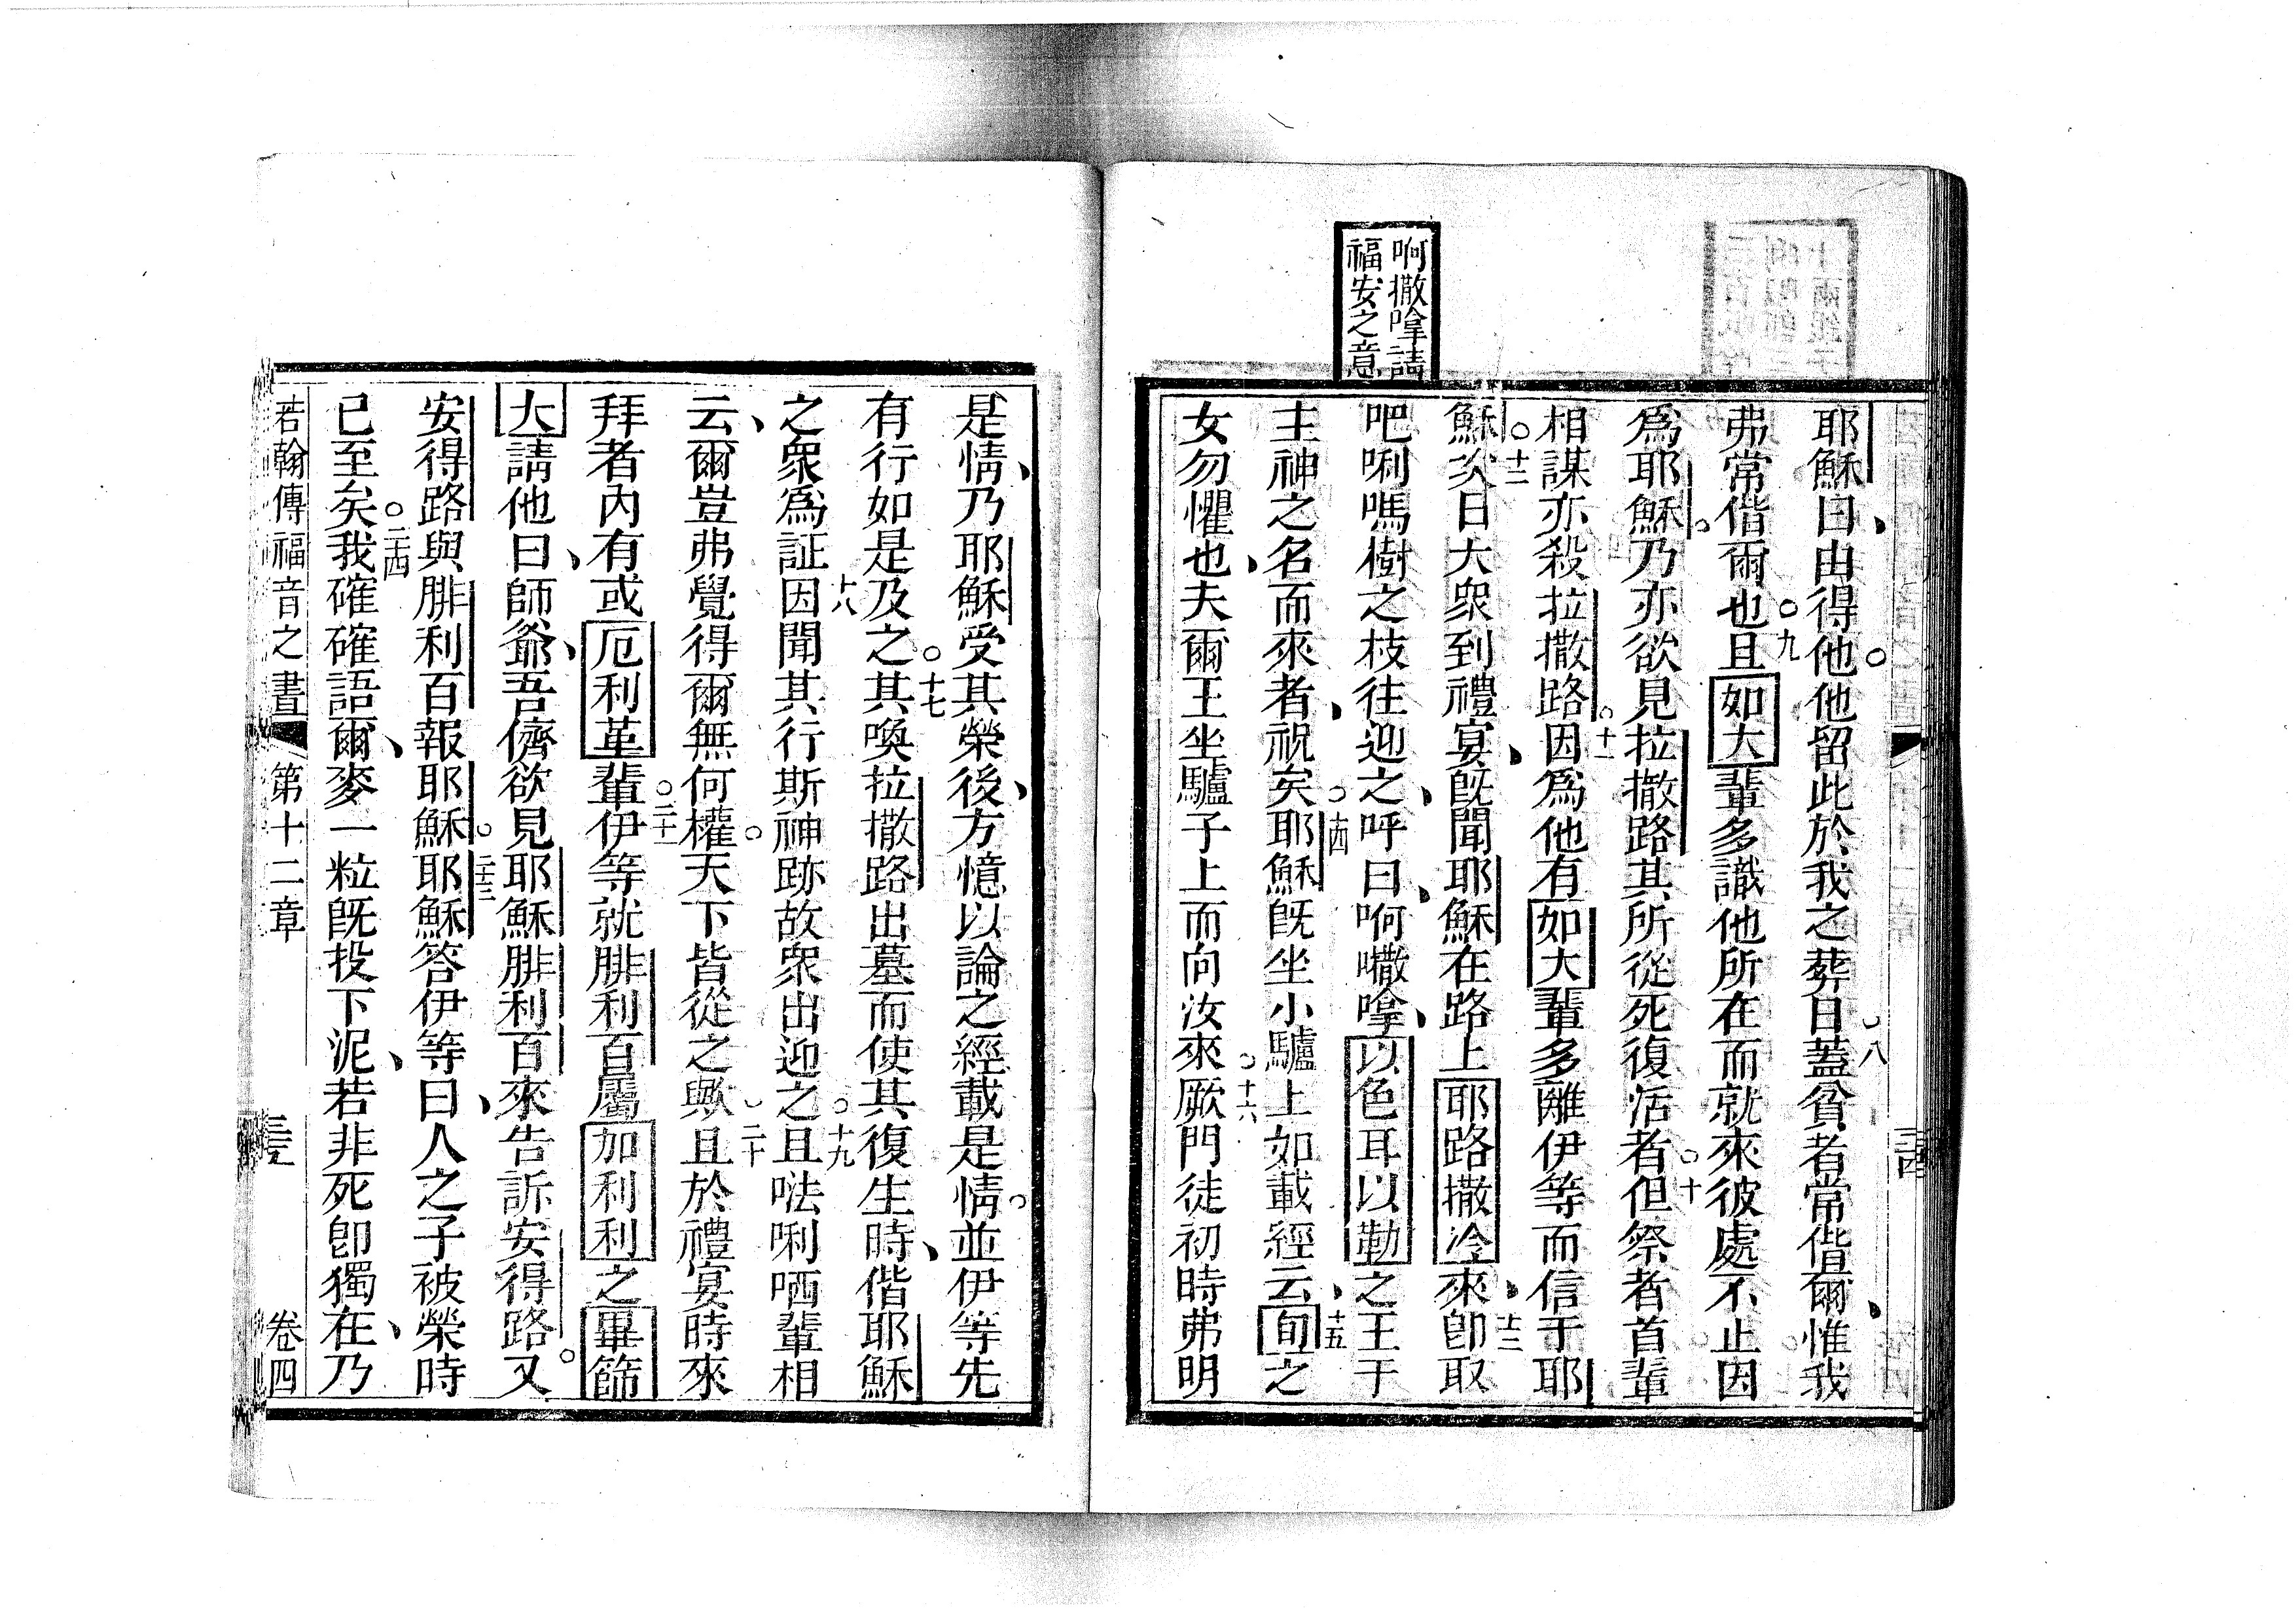 啊撒嗱請
福安之意
耶穌曰由得他他留此於我之葬日蓋貧者常偕爾惟我
八
弗常偕爾也且如大輩多識他所在而就來彼處不止因
九
爲耶穌乃亦欲見拉撒路其所從死復活者但祭者首輩
十
相謀亦殺拉撒路因爲他有如大輩多離伊等而信于耶
十一
穌次日大衆到禮宴旣聞耶穌在路上耶路撒冷來卽取
十二
十三
吧唎嗎樹之枝往迎之呼曰啊嚫嗱以色耳以勒之王于
主神之名而來者祝矣耶穌旣坐小驢上如載經云旬之
十四
十五
女勿懼也夫爾王坐驢子上而向汝來厥門徒初時弗明
十六
是情乃耶穌受其榮後方憶以論之經載是情並伊等先
有行如是及之其喚拉撒路出墓而使其復生時偕耶穌
十七
之衆爲証因聞其行斯神跡故衆出迎之且𠵽唎哂輩相
十八
十九
云爾豈弗覺得爾無何權天下皆從之歟且於禮宴時來
二十
拜者內有或厄利革輩伊等就腓利百屬加利利之畢篩
二十一
大請他曰師爺吾儕欲見耶穌腓利百來告訴安得路又
安得路與腓利百報耶穌耶穌答伊等曰人之子被榮時
二十三
已至矣我確確語爾麥一粒旣投下泥若非死卽獨在乃
二十四
若翰傳福音之書 第十二章 卷四